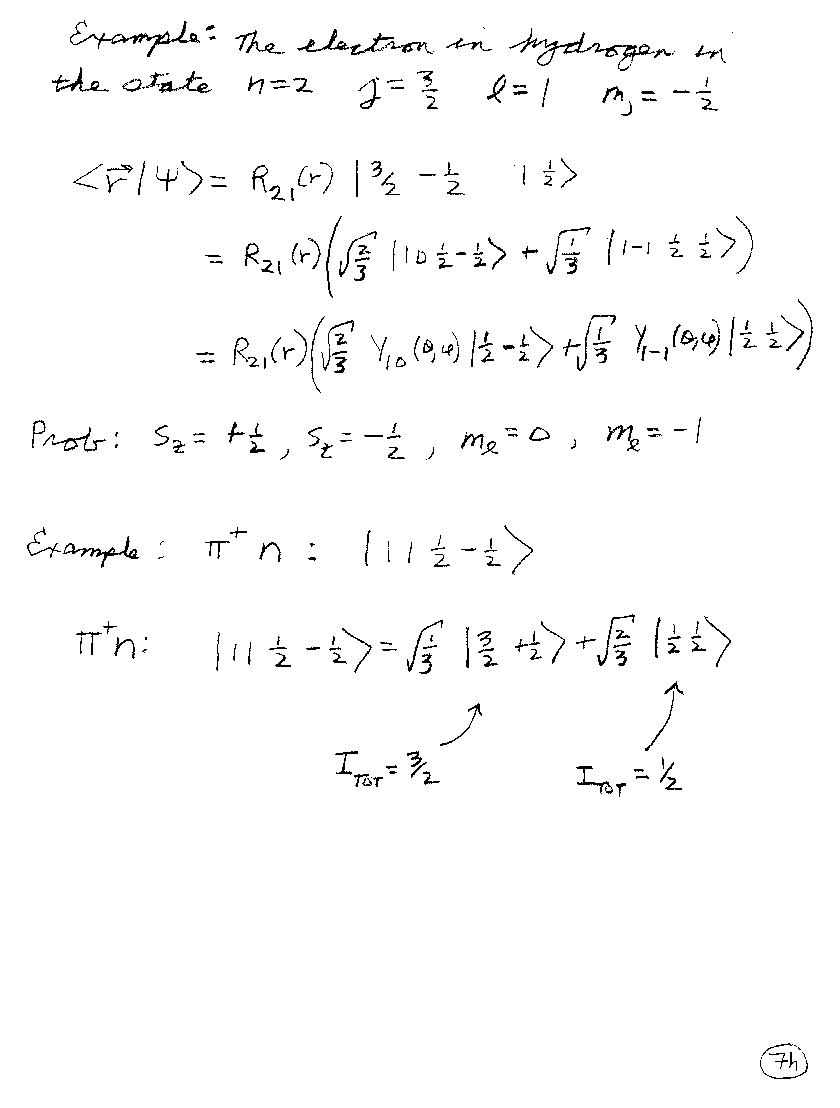 Example: The electron in hydrogen in
the state n=2 j=3/2 l=1 m_j = -1/2
<r⃗|Ψ> = R₂₁(r) |3/2 -1/2 1 1/2>
= R₂₁(r)(√(2/3) |1 0 1/2 -1/2> + √(1/3) |1 -1 1/2 1/2>)
= R₂₁(r)(√(2/3) Y₁₀(θ,φ)|1/2 -1/2> + √(1/3) Y₁₋₁(θ,φ)|1/2 1/2>)
Prob: S_z = +1/2, S_z = -1/2, m_l = 0, m_l = -1
Example: π⁺n : |1 1 1/2 -1/2>
π⁺n: |1 1 1/2 -1/2> = √(1/3) |3/2 +1/2> + √(2/3) |1/2 1/2>
I_TOT = 3/2 I_TOT = 1/2
7h